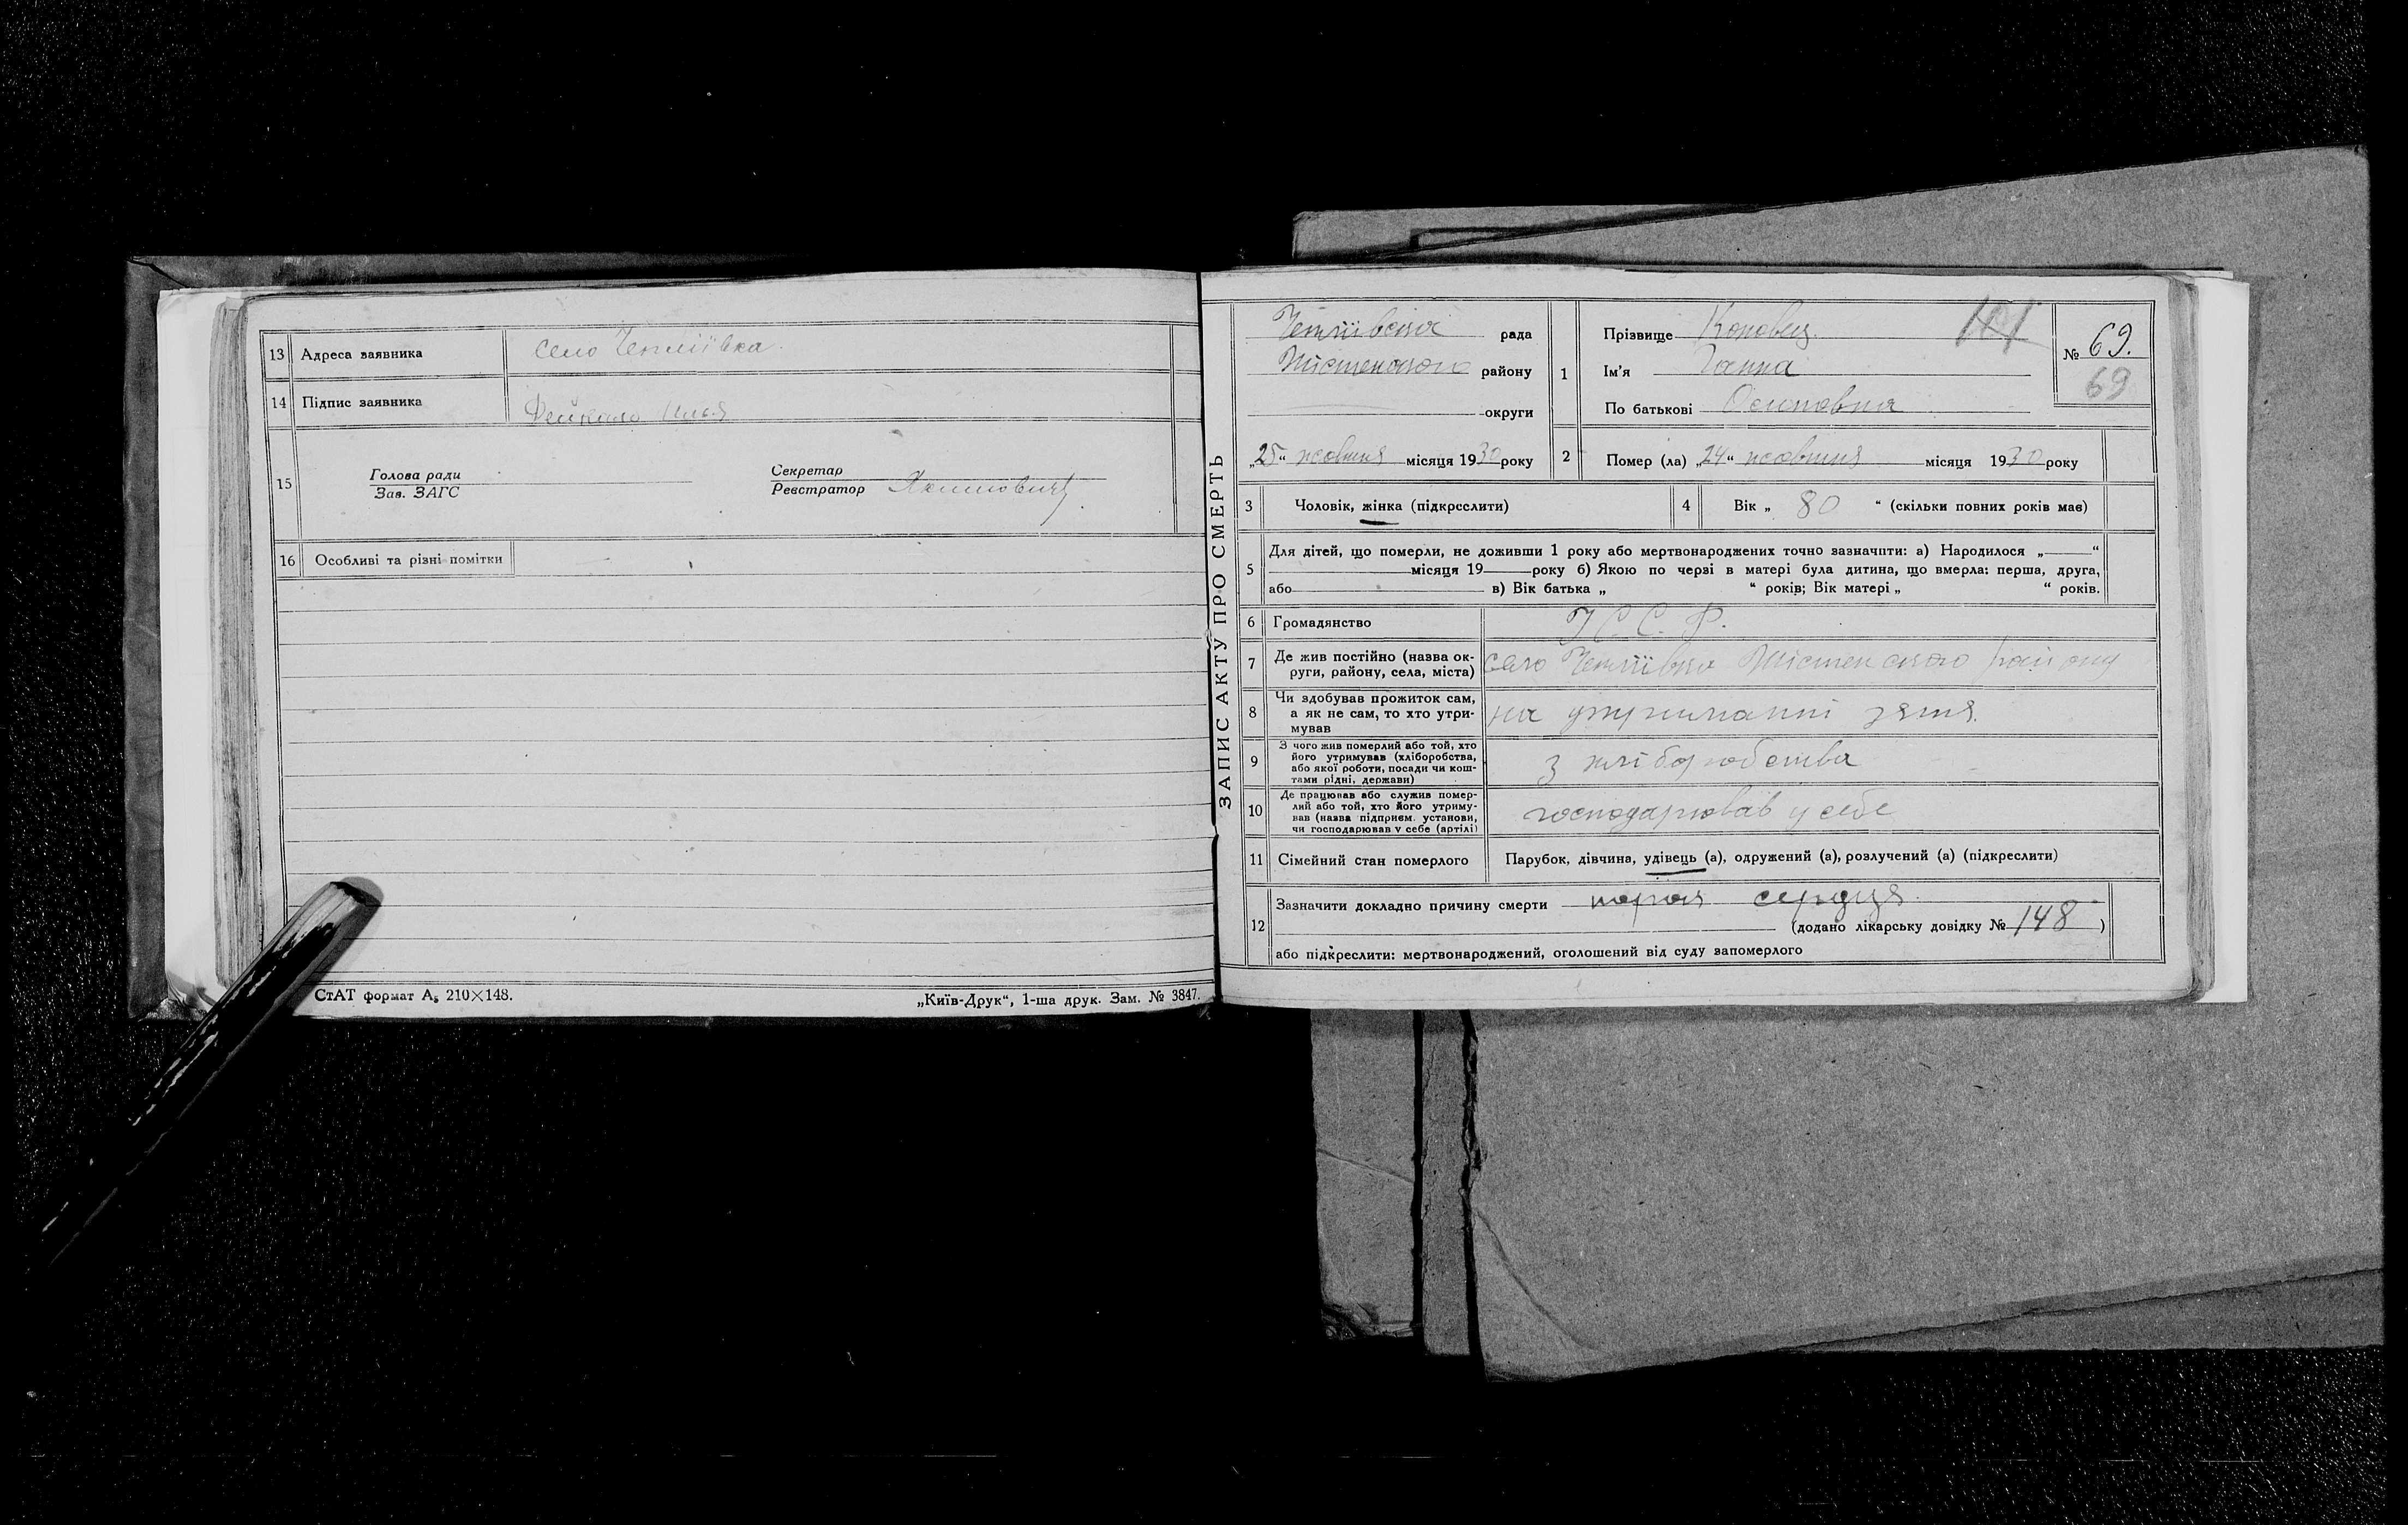 13 Адреса заявника село
14 Підпис заявника
15 Голова ради Секретар
Зав. ЗАГС Реєстратор
16 Особливі та різні помітки
СтАТ формат А₅ 210×148. „Київ-Друк“, 1-ша друк. Зам. № 3847.
ЗАПИС АКТУ ПРО СМЕРТЬ
рада
району
округи
„25“ жовтня місяця 1930 року
1 Прізвище
Ім'я Ганна
По батькові Осиповна
№ 69.
69
2 Помер (ла) „24“ жовтня місяця 1930 року
3 Чоловік, жінка (підкреслити) 4 Вік „ 80 “ (скільки повних років має)
5 Для дітей, що померли, не доживши 1 року або мертвонароджених точно зазначити: а) Народилося „ “
місяця 19 року б) Якою по черзі в матері була дитина, що вмерла: перша, друга,
або в) Вік батька „ “ років; Вік матері „ “ років.
6 Громадянство
7 Де жив постійно (назва ок-
руги, району, села, міста) село району
8 Чи здобував прожиток сам,
а як не сам, то хто утри-
мував на утриманні зятя.
9 З чого жив померлий або той, хто
його утримував (хліборобства,
або якої роботи, посади чи кош-
тами рідні, держави) з хліборобства
10 Де працював або служив помер-
лий або той, хто його утриму-
вав (назва підприєм. установи,
чи господарював у себе (артілі) господарював у себе
11 Сімейний стан померлого Парубок, дівчина, удівець (а), одружений (а), розлучений (а) (підкреслити)
12 Зазначити докладно причину смерти сердця
(додано лікарську довідку № 148 )
або підкреслити: мертвонароджений, оголошений від суду запомерлого